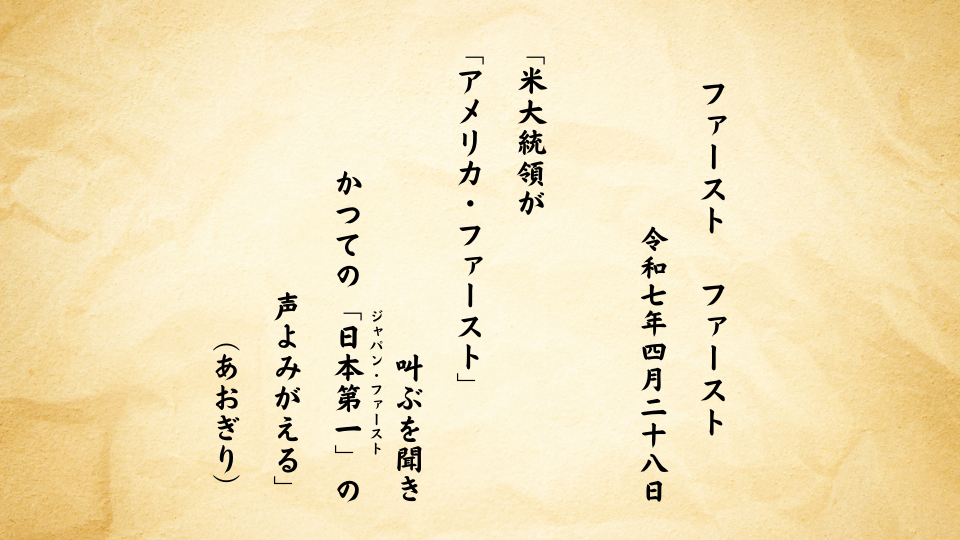 ファースト ファースト
令和七年四月二十八日
「米大統領が
「アメリカ・ファースト」
叫ぶを聞き
ジャパン・ファースト
かつての「日本第一」の
声よみがえる」
（あおぎり）